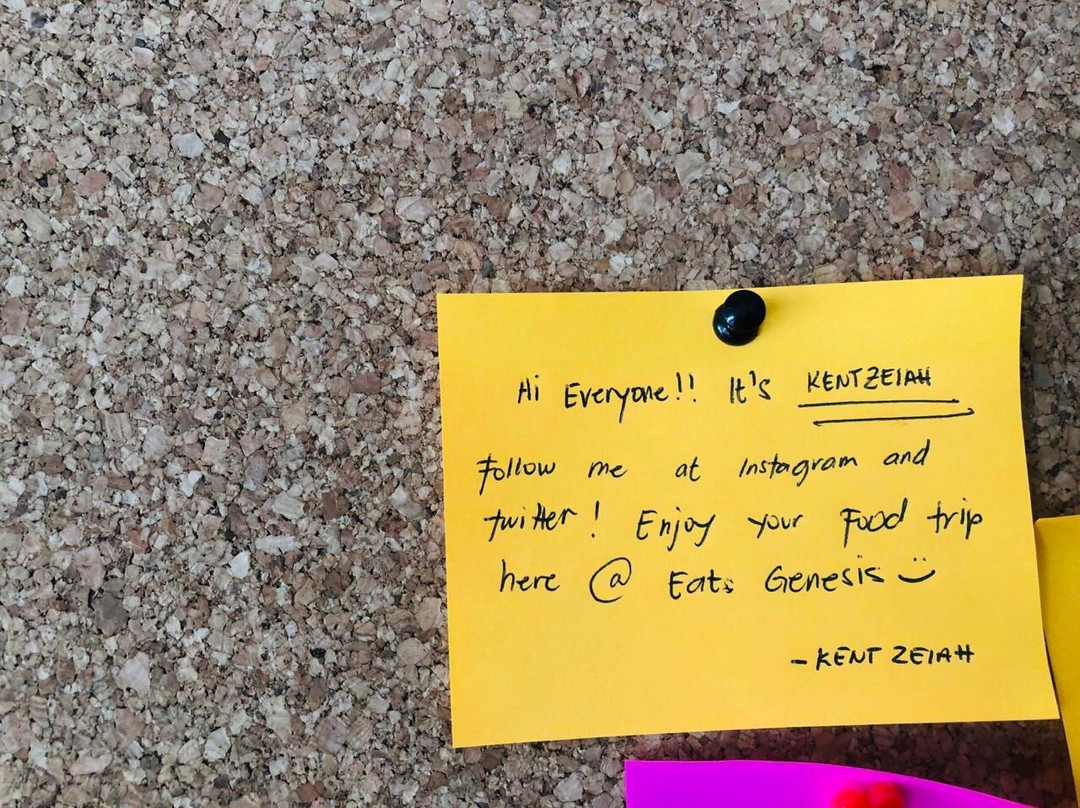 Hi Everyone!! It's KENTZEIAH
Follow me at Instagram and
twitter! Enjoy your Food trip
here @ Eats Genesis :)
- KENT ZEIAH